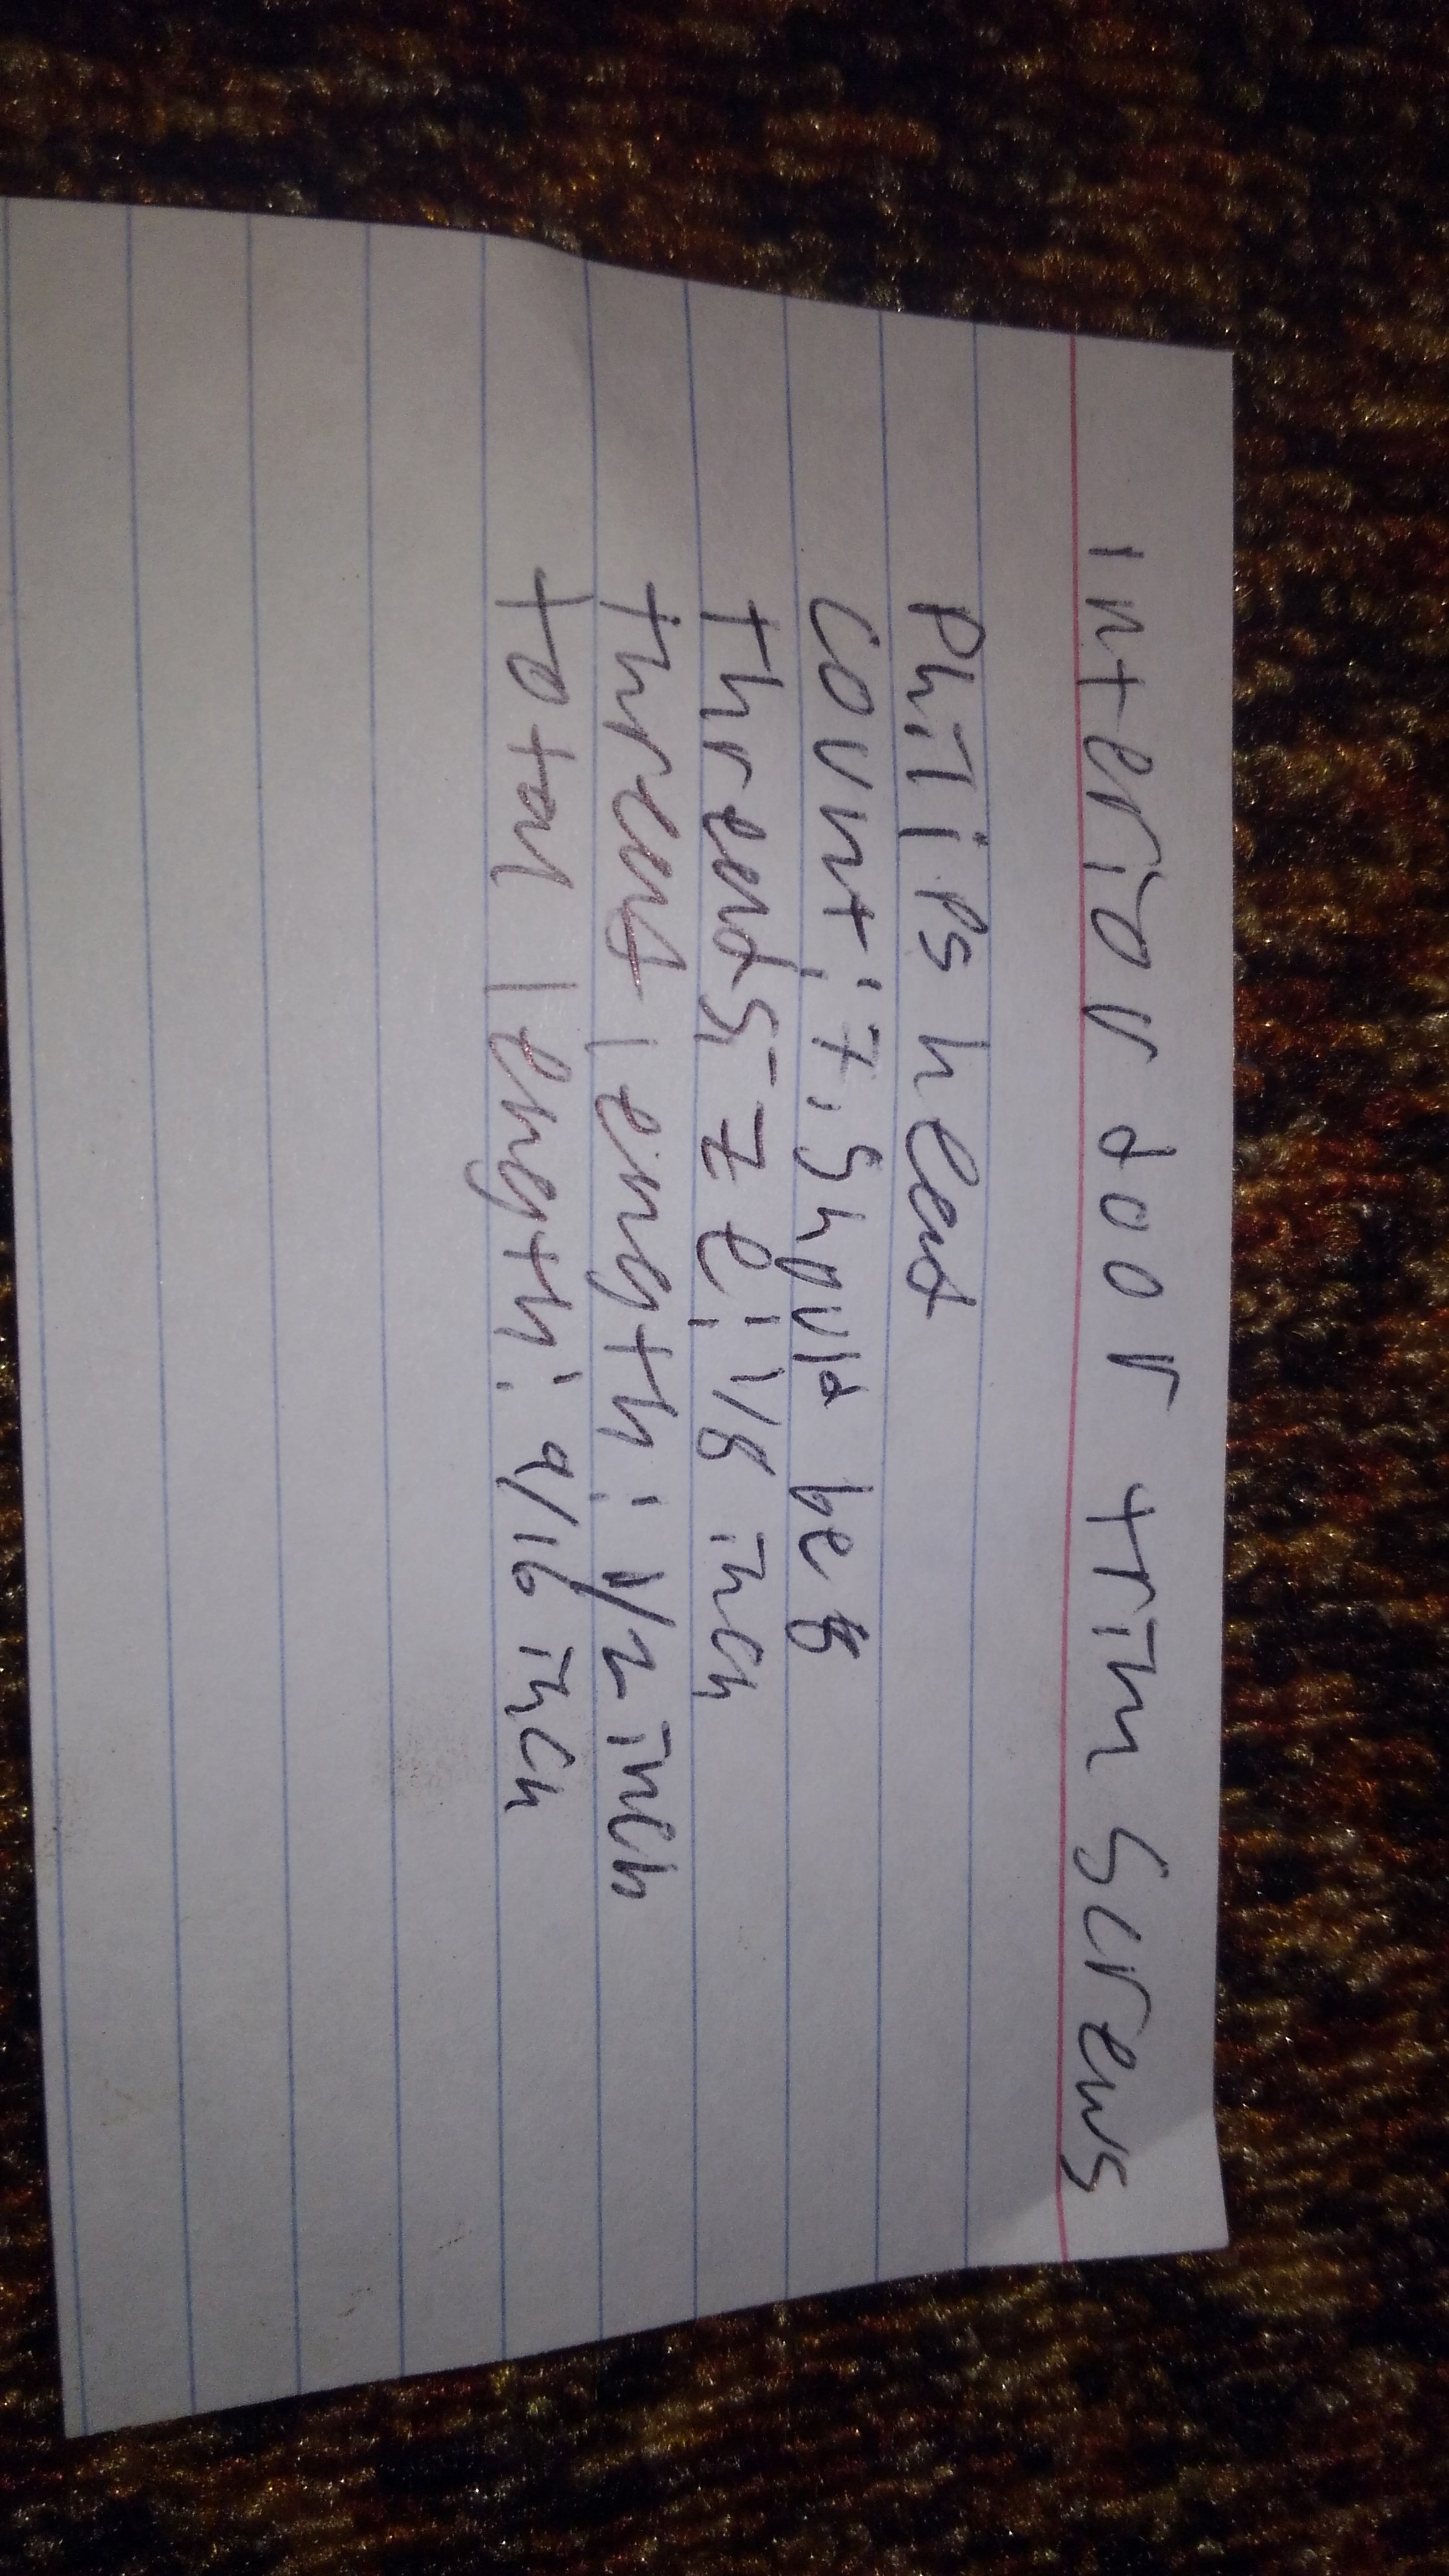 interior door trim screws
Philips head
Count: 7, Should be 8
thread size: 1/8 inch
thread length: 1/2 inch
total length: 9/16 inch